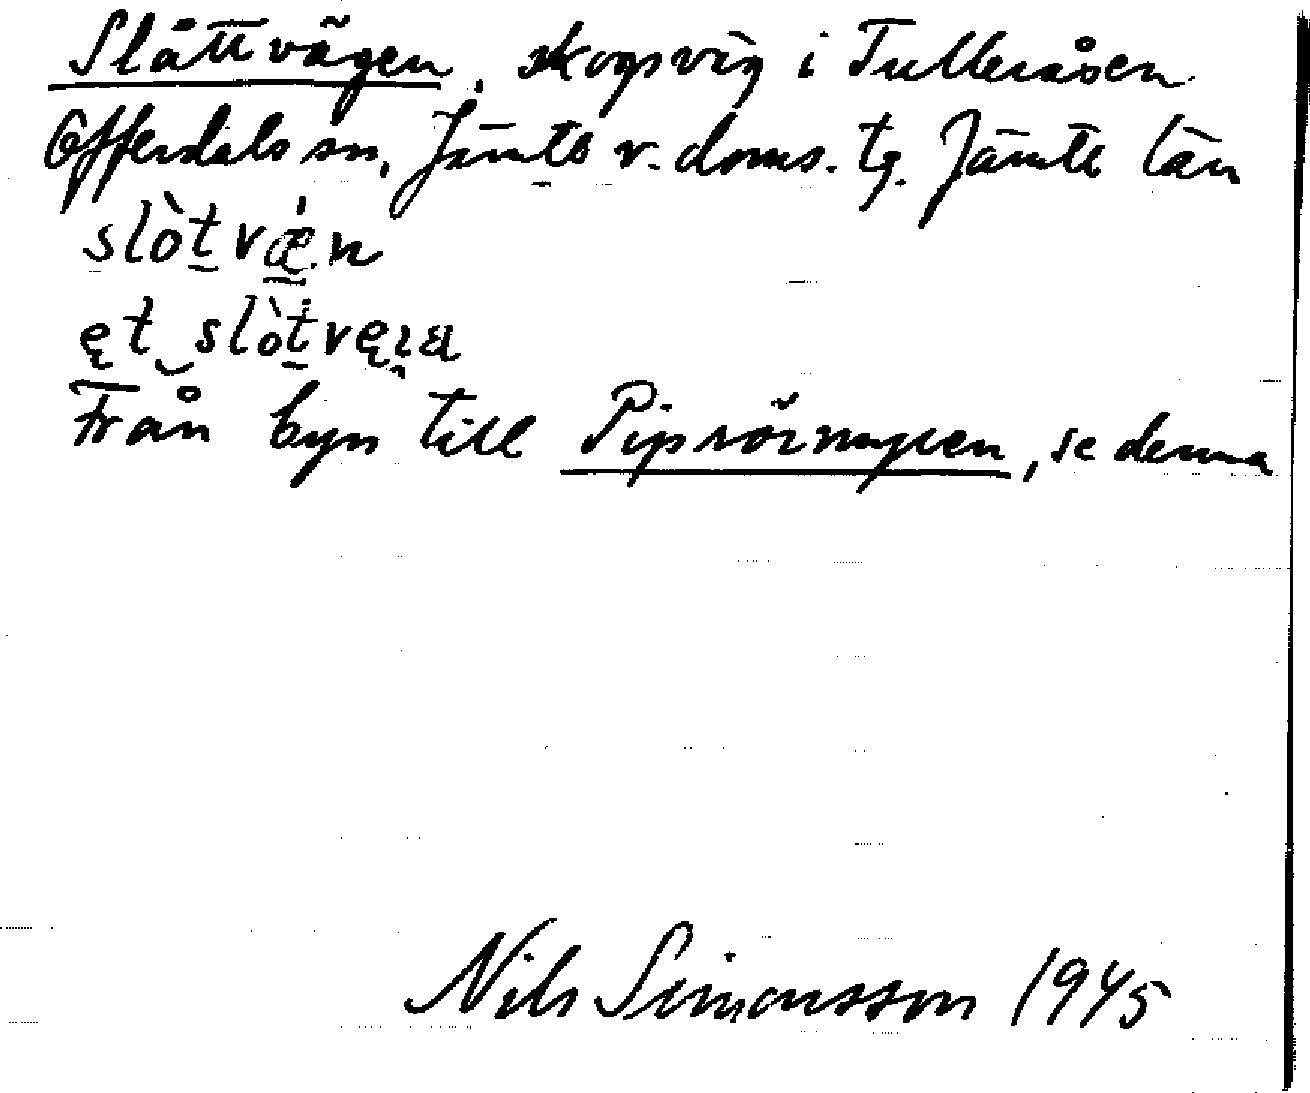 Slåttvägen, skogsväg i Tulleråsen
Offerdals sn, Jämtl v. doms. tg. Jämtl län
slòt væ̀n
et slòtveɪa
Från byn till Piprörmyren, se denna
Nils Simonsson 1945